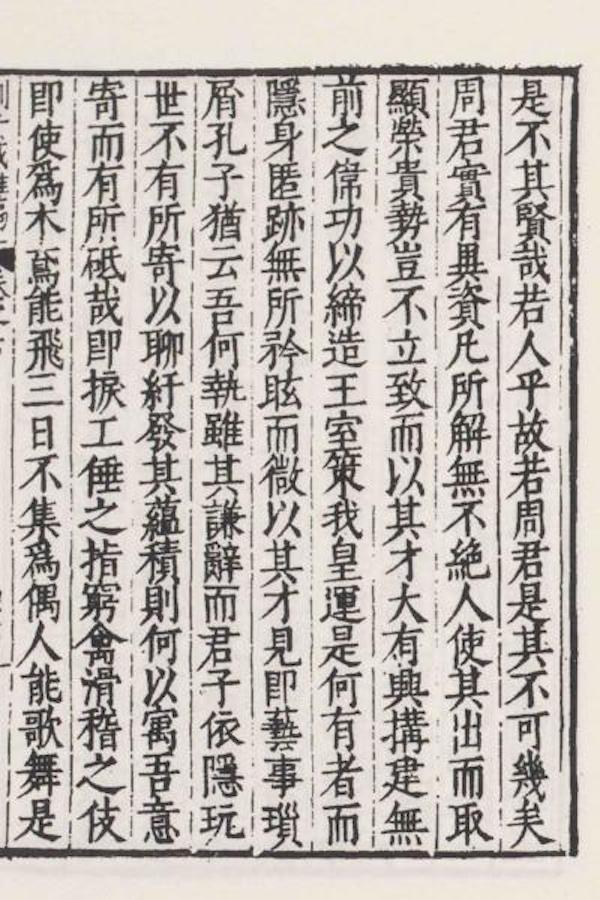 是不其賢哉若人乎故若周君是其不可幾矣
周君實有異資凡所解無不絶人使其出而取
顯榮貴勢豈不立致而以其才大有興搆建無
前之偉功以締造王室策我皇運是何有者而
隱身匿跡無所矜眩而微以其才見即藝事瑣
屑孔子猶云吾何執雖其謙辭而君子依隱玩
世不有所寄以聊紓發其蘊積則何以寓吾意
寄而有所砥哉即捩工倕之指窮禽滑稽之伎
即使爲木鳶能飛三日不集爲偶人能歌舞是